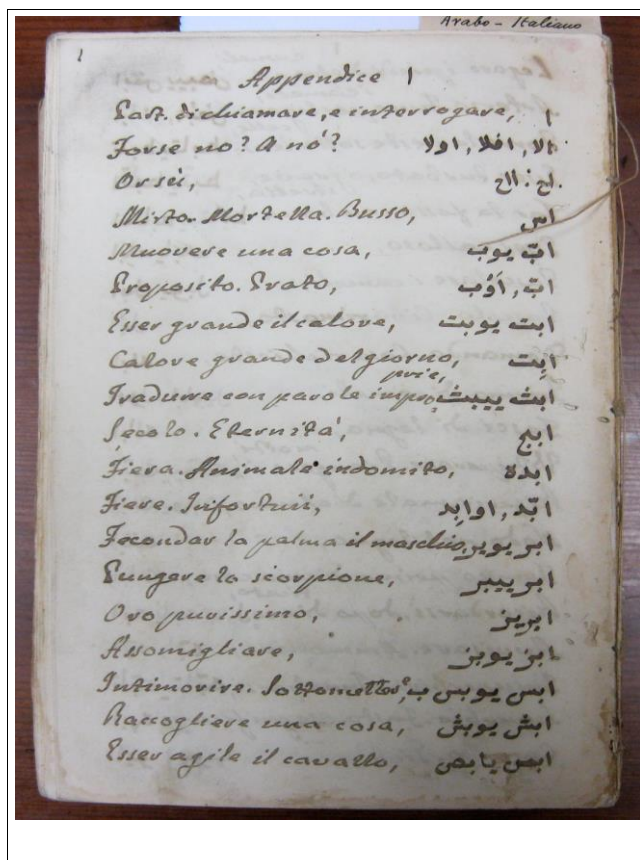 Arabo - Italiano
1
Appendice 1
Part. di chiamare, e interrogare, ا
Forse no? O no? الا, افلا, اولا
Orsù,
Mirto. Mortella. Busso, اس
Muovere una cosa, ابّ يوب
Proposito. Prato, ابّ, اوُب
Esser grande il calore, ابت يوبت
Calore grande del giorno, ابِت
Tradurre con parole improprie, ابث ييبث
Secolo. Eternità, ابج
Fiera. Animale indomito, ابدة
Fiere. Infortunii, ابّد, اوابِد
Fecondar la palma il maschio, ابر يوبر
Pungere lo scorpione, ابر ييبر
Oro purissimo, ابريز
Assomigliare, ابز يوبز
Intimorire. Sottomettere, ابس يوبس ب
Raccogliere una cosa, ابش يوبش
Esser agile il cavallo, ابص يابص